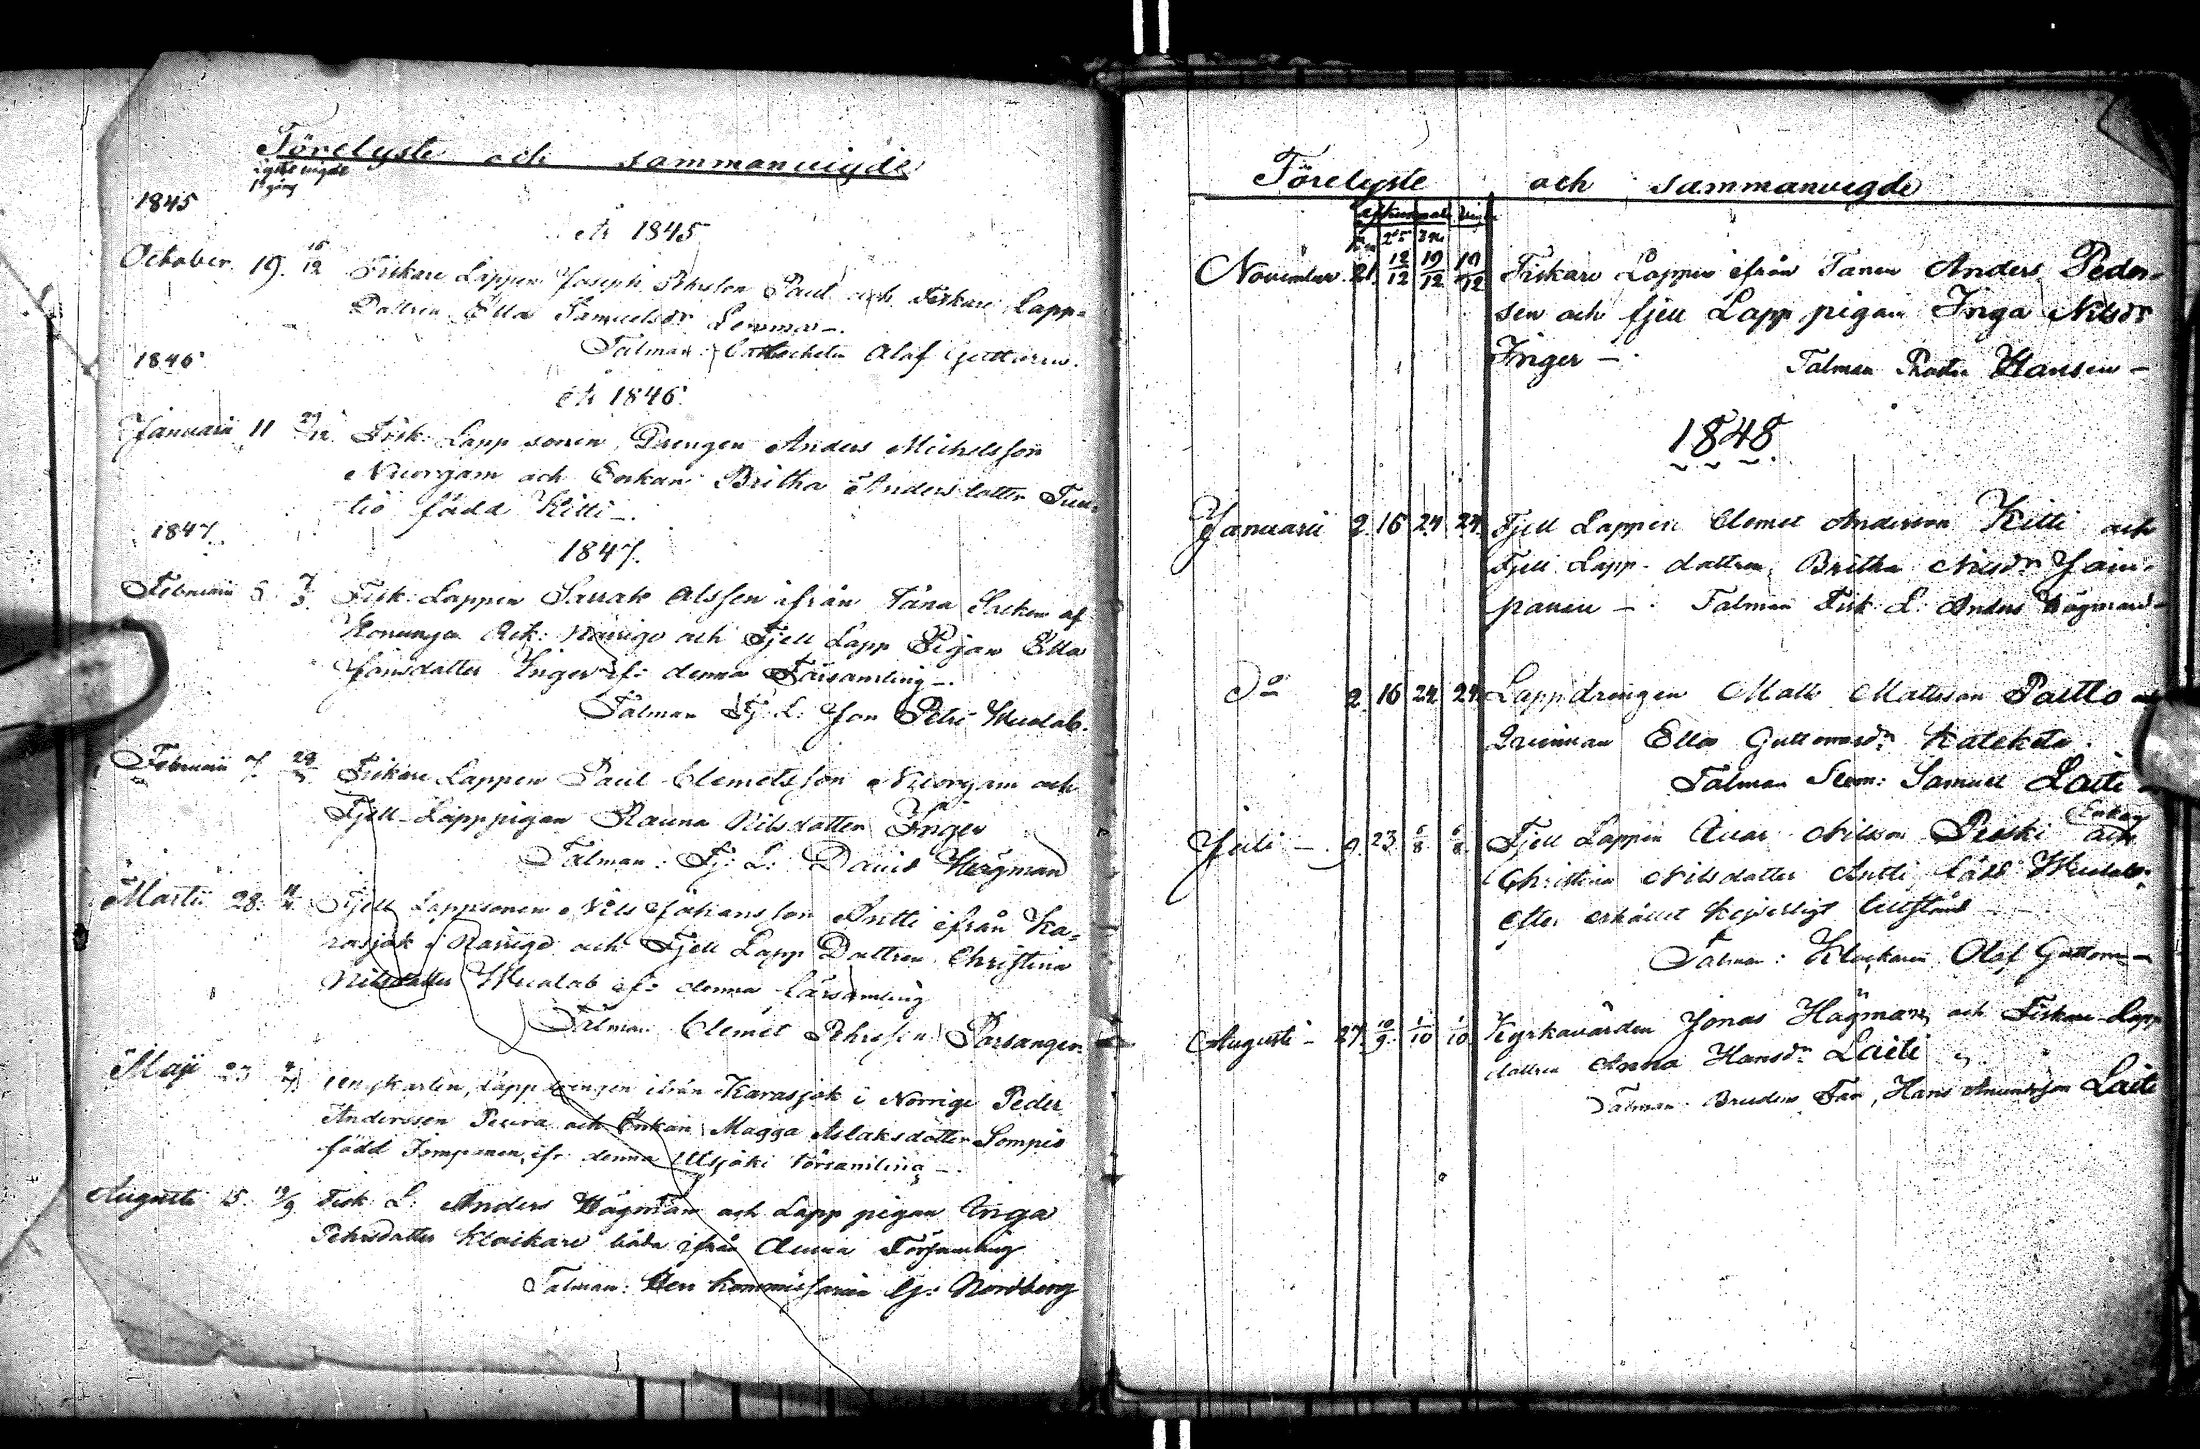 Förelyste och sammanvigde
1sta gång
1845
År 1845
October. 19. 15/12 Fiskare Lappen Joseph Pehrsson Paul och Fiskare Lapp-
Dottren Ella Samuelsdr Lemma -.
Talman: Catecheten Olof Guttorm.
1846
År 1846.
Januarii 11 Fisk: Lapp sonen, Drengen Anders Michelsson
Nuorgam och Enkan Britha Anders dotter
född Kitti -.
1847
1847.
Februarii 5. 7/3. Fisk: Lappen Sarrak Olssen ifrån Tana Socken af
Konunga Rik: Norrige och Fjell Lapp Pigan Ella
Jonsdotter Inger if: denna Församling -.
Talman Fj: L: Jon Petri Wuolab.
Februarii 7. Fiskare Lappen Paul Clemetsson Nuorgam och
Fjell-Lapppigan Rauna Nilsdotter Inger
Talman: Fj: L: David Högman
Martii 28. Fjell Lappsonen Nils Johansson Antti ifrån Ka-
rasjok i Norrige och Fjell Lapp Dottren Christina
Nilsdotter Wuolab if: denna församling
Talman Clemet Pehrsson Porsanger.
Maji 23 ungkarlen, Lappdrengen ifrån Karasjok i Norrige Peder
Anderssen Peura och Enkan Magga Aslaksdotter Sompio
född Jomppanen, ifr denna Utsjoki församling -.
Augusti 15. 12/9 Fisk. L: Anders Högman och Lapp pigan Inga
Pehrsdotter Klockare båda ifrån denna Församling
Talman: Herr Kommissarien G: Nordberg
Förelyste och sammanvigde
2a 3die
November. 21. 12/12 19/12 19/12 Fiskare Lappen ifrån Tanen Anders Peder-
sen och fjell Lapp pigan Inga Nilsdr
Inger -. Talman Hansen -
1848.
Januarii 2. 16 24 24. Fjell Lappen Clemet Andersson Kitti och
Fjell Lapp-dottren, Britha Nilsdr Jom-
panen -. Talman Fisk L: Anders Högman -
Do 2. 16 24 24 Lappdrengen Matts Mattsson Paltto och
Qvinnan Ella Guttormsdr Katekete.
Talman Samuel Laiti -
Juli -. 9. 23. 6/8 6/8. Fjell Lappen Nilsson Peski och Enkan
Christina Nilsdotter Antti född Wuolab.
efter erhållet Kejserligt tillstånd -
Talman: Klockaren Olof Guttorm -
Augusti - 27. 10/9. 1/10 1/10 Kyrkovärden Jonas Högman och Fiskare-Lapp
dottren Anna Hansdr Laiti
Talman: Brudens Far, Hans Amundsson Laiti